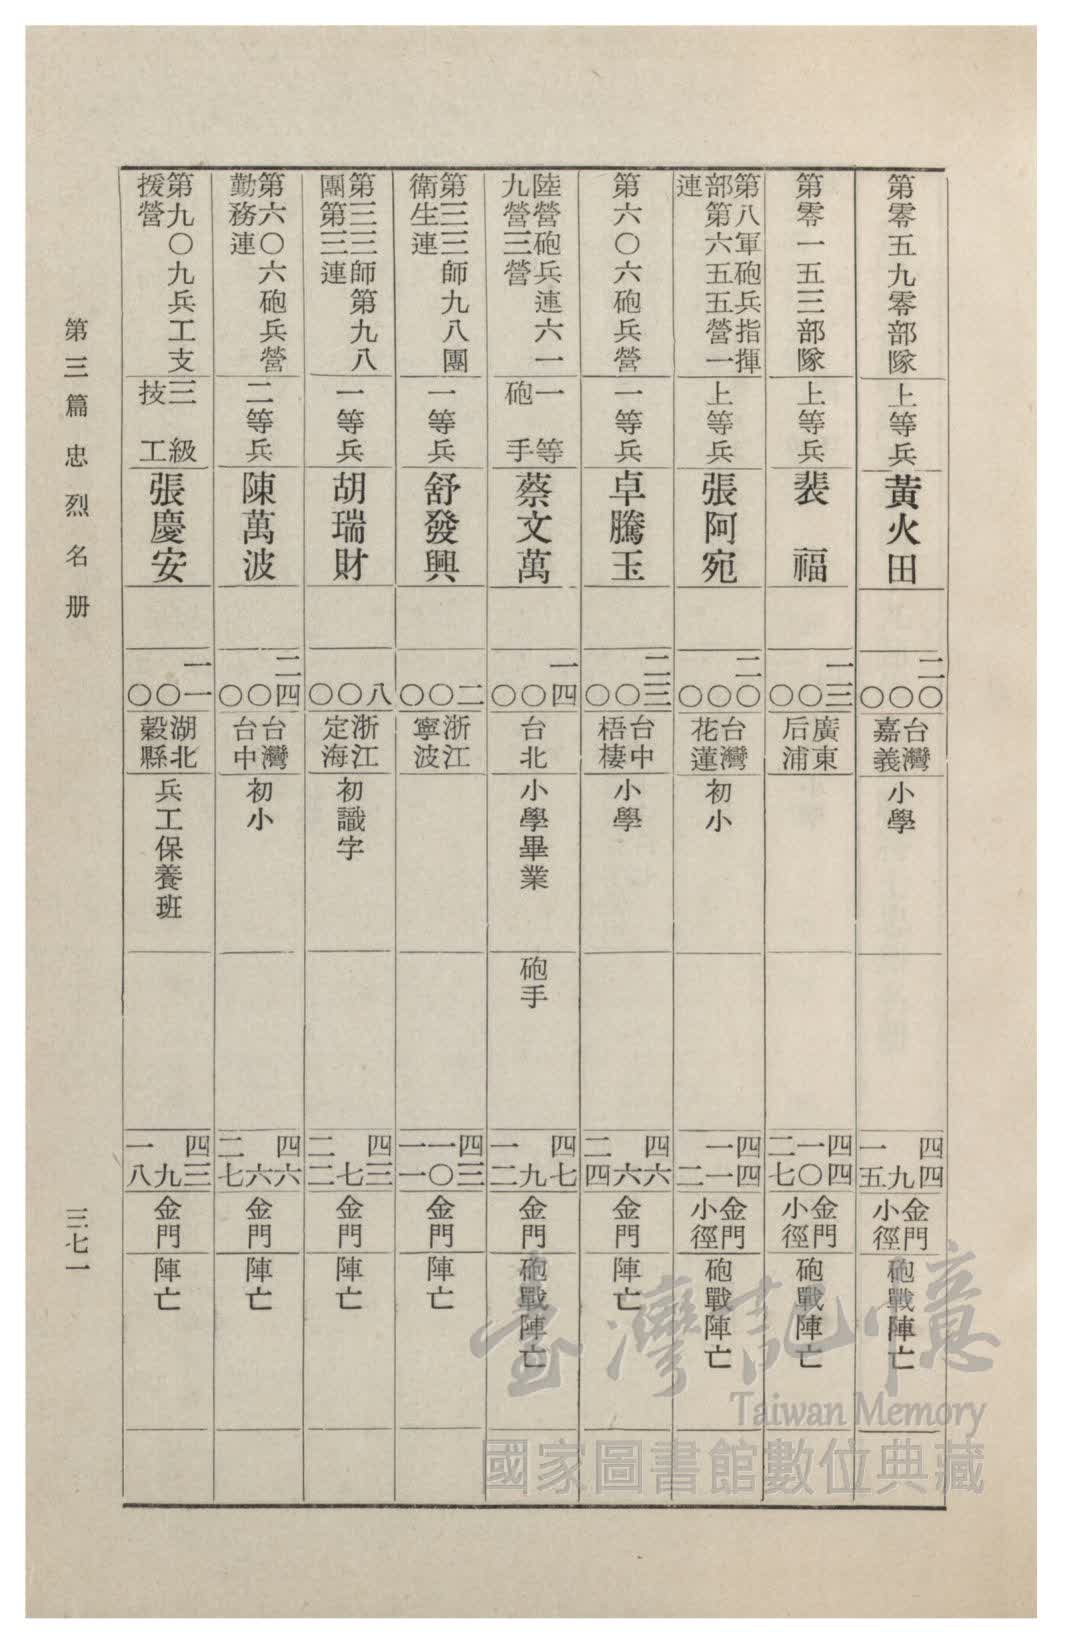 第零五九零部隊
上等兵
黃火田
二〇
〇
〇
台灣
嘉義
小學
四四
九
一五
金門
小徑
砲戰陣亡
第零一五三部隊
上等兵
裴　福
一三
〇
〇
廣東
后浦
四四
一〇
二七
金門
小徑
砲戰陣亡
第八軍砲兵指揮
部第六五五營一
連
上等兵
張阿宛
二〇
〇
〇
台灣
花蓮
初小
四四
一一
二
金門
小徑
砲戰陣亡
第六〇六砲兵營
一等兵
卓騰玉
二三
〇
〇
台中
梧棲
小學
四六
六
二四
金門
陣亡
陸營砲兵連六一
九營三營
一等
砲手
蔡文萬
一四
〇
〇
台北
小學畢業
砲手
四七
九
一二
金門
砲戰陣亡
第三三師九八團
衛生連
一等兵
舒發興
二
〇
〇
浙江
寧波
四三
一〇
一一
金門
陣亡
第三三師第九八
團第三連
一等兵
胡瑞財
八
〇
〇
浙江
定海
初識字
四三
七
二二
金門
陣亡
第六〇六砲兵營
勤務連
二等兵
陳萬波
二四
〇
〇
台灣
台中
初小
四六
六
二七
金門
陣亡
第九〇九兵工支
援營
三級
技工
張慶安
一一
〇
〇
湖北
穀縣
兵工保養班
四三
九
一八
金門
陣亡
第三篇忠烈名册
三七一
臺灣記憶
Taiwan Memory
國家圖書館數位典藏